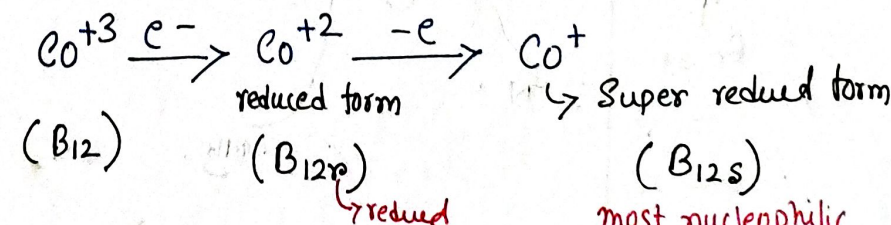 Co+3 e-→ Co+2 -e→ Co+
reduced form ↳ Super redued form
(B12) (B12r) (B12s)
↳ redued most nucleophilic